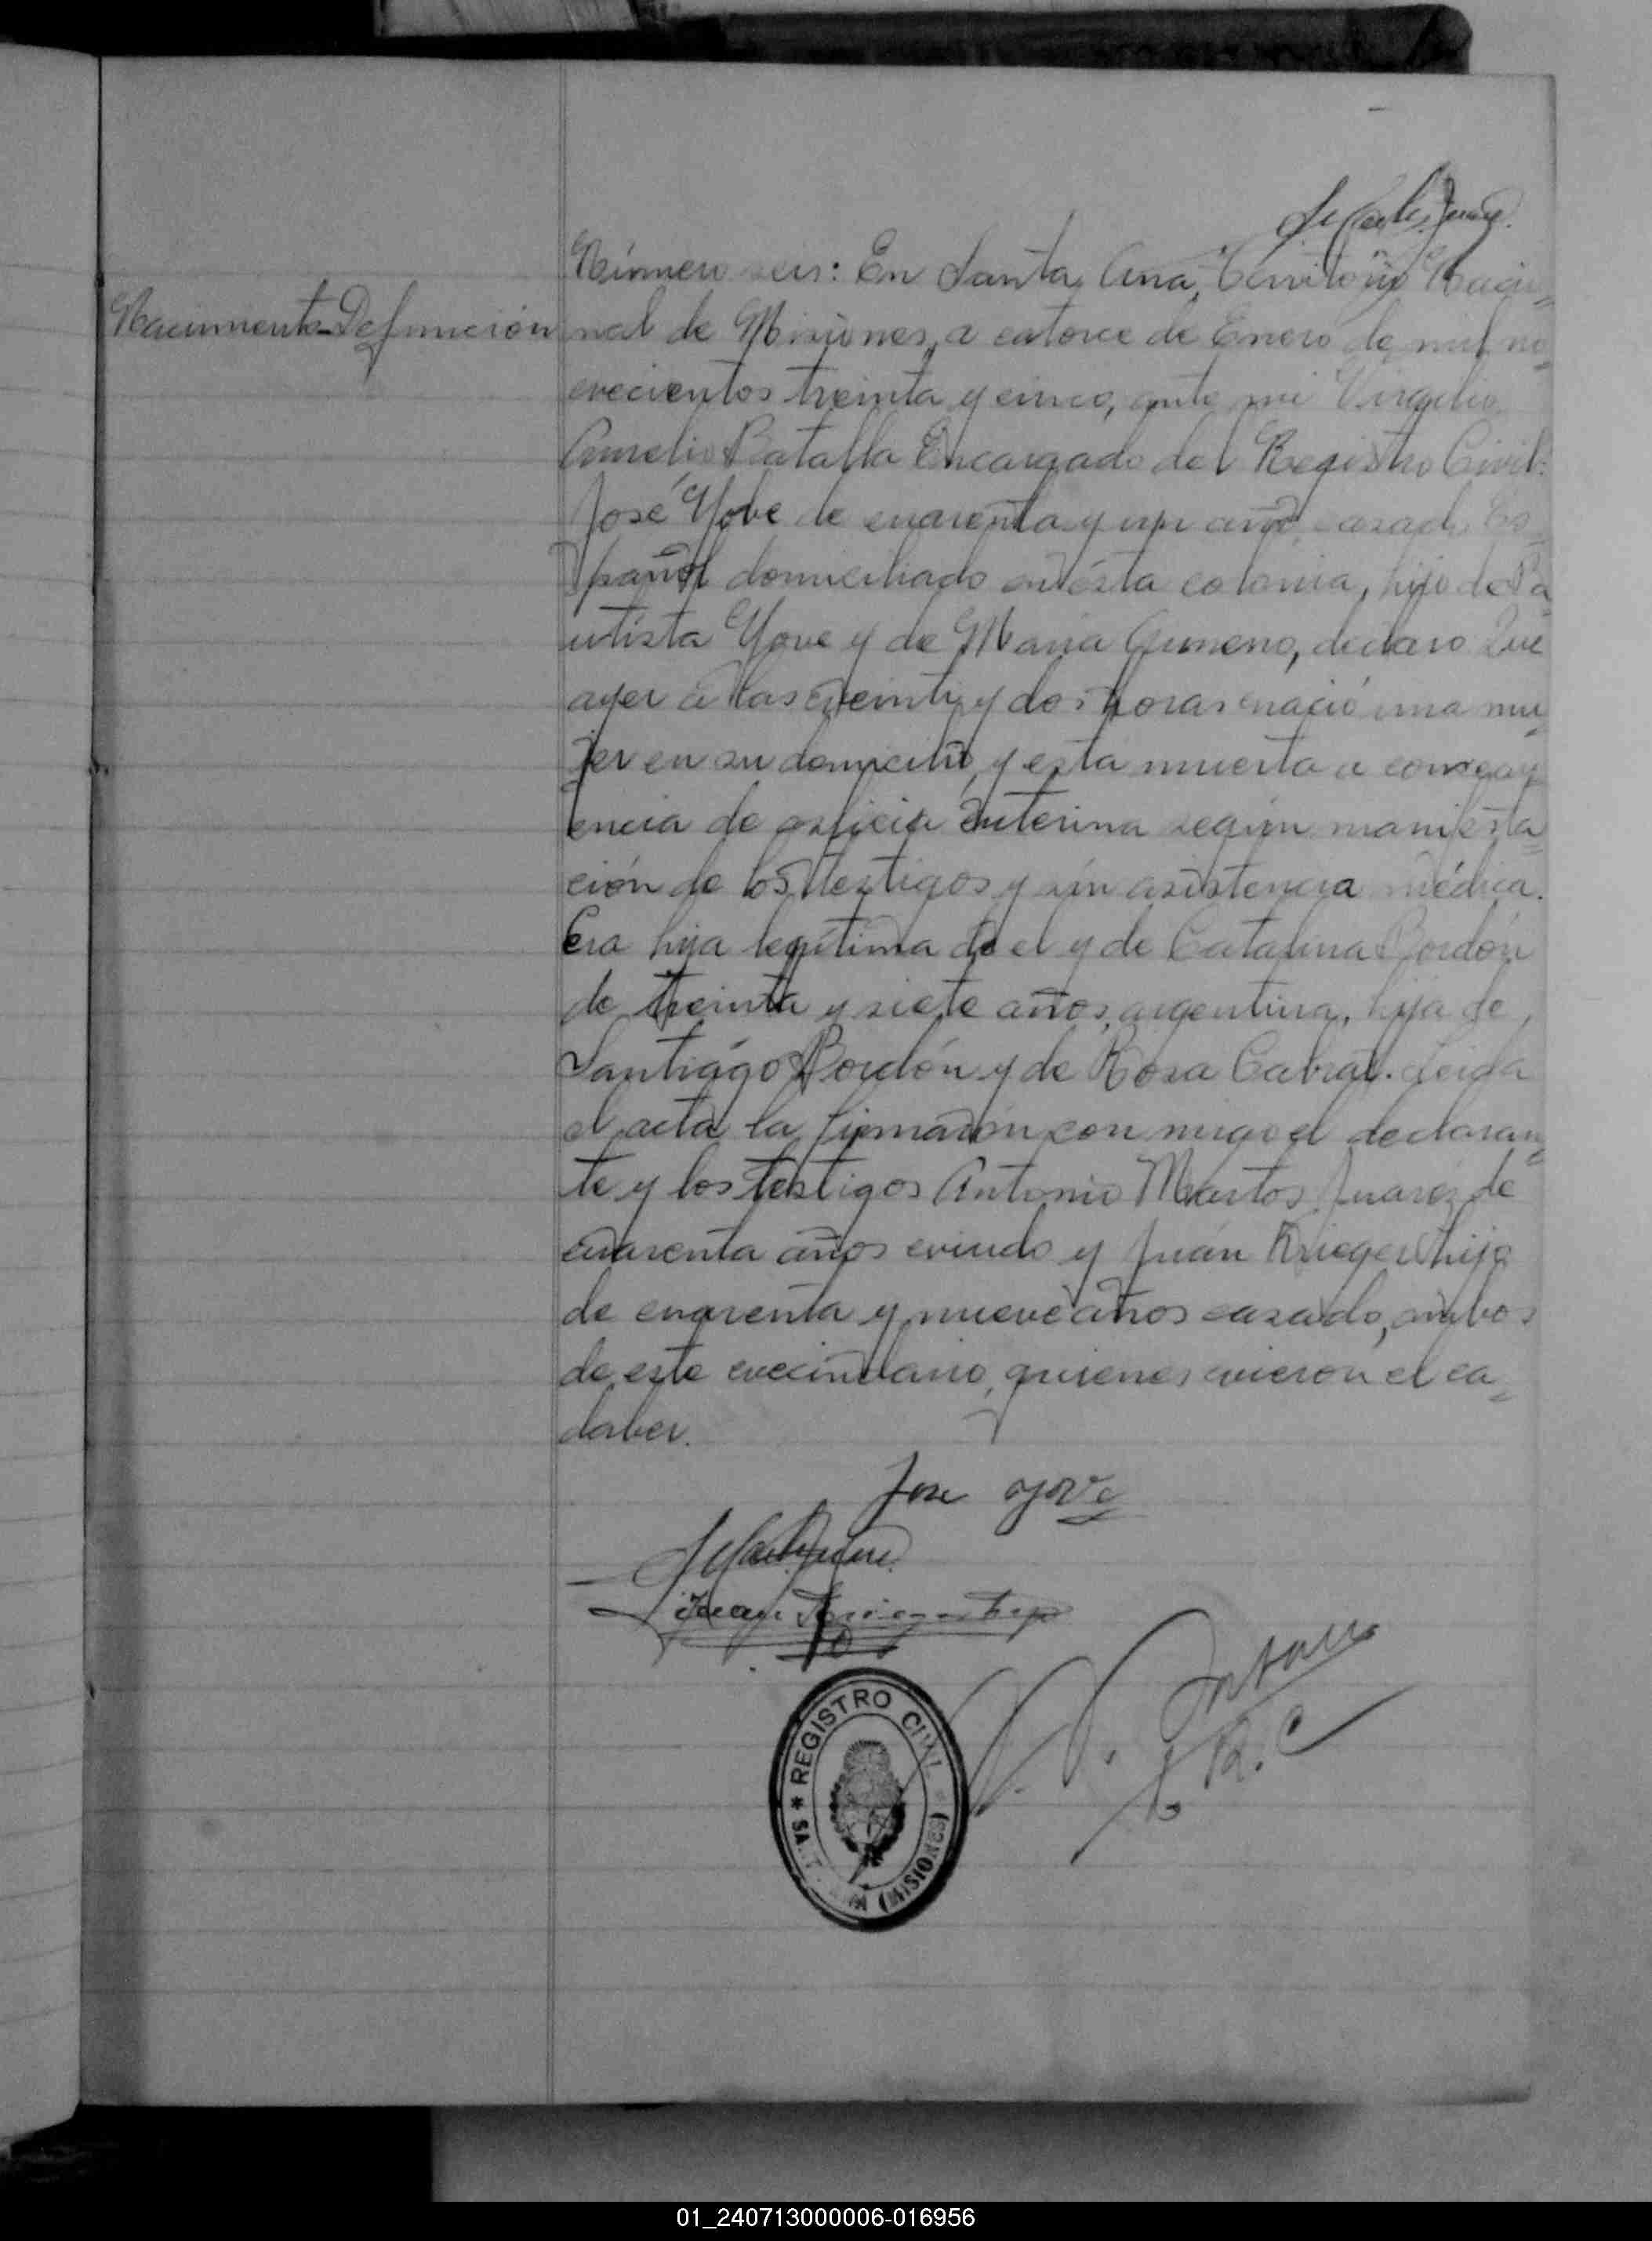 Número seis: En Santa Ana, Territorio Nacio-
Nacimiento-Defunción
nal de Misiones, a catorce de Enero de mil no-
vecientos treinta y cinco, ante mi Virgilio
Aurelio Batalla Encargado del Registro Civil:
José Yove de cuarenta y un año casado Es-
pañol domiciliado en ésta colonia, hijo de Ba-
utista Yove y de Maria Gimeno, declaro Que
ayer a las veinti y dos horas nació una mu-
jer en su domicilio, y esta muerta a consecu
encia de asficia interina según manifesta-
ción de los testigos y sin asistencia médica.
Era hija legítima de el y de Catalina Bordón
de treinta y siete años, argentina, hija de
Santiago Bordón y de Rosa Cabral. Leida
el acta la firmaron con migo el declaran-
te y los testigos Antonio Martos Juarez de
cuarenta años viudo y Juán Krieger hijo
de cuarenta y nueve años casado, ambos
de este vecindario, quienes vieron el ca-
daber.
Jose Yove
Juan Krieger hijo
V. A. Batalla
E. R. C
* REGISTRO CIVIL *
SANTA ANA (MISIONES)
01_240713000006-016956